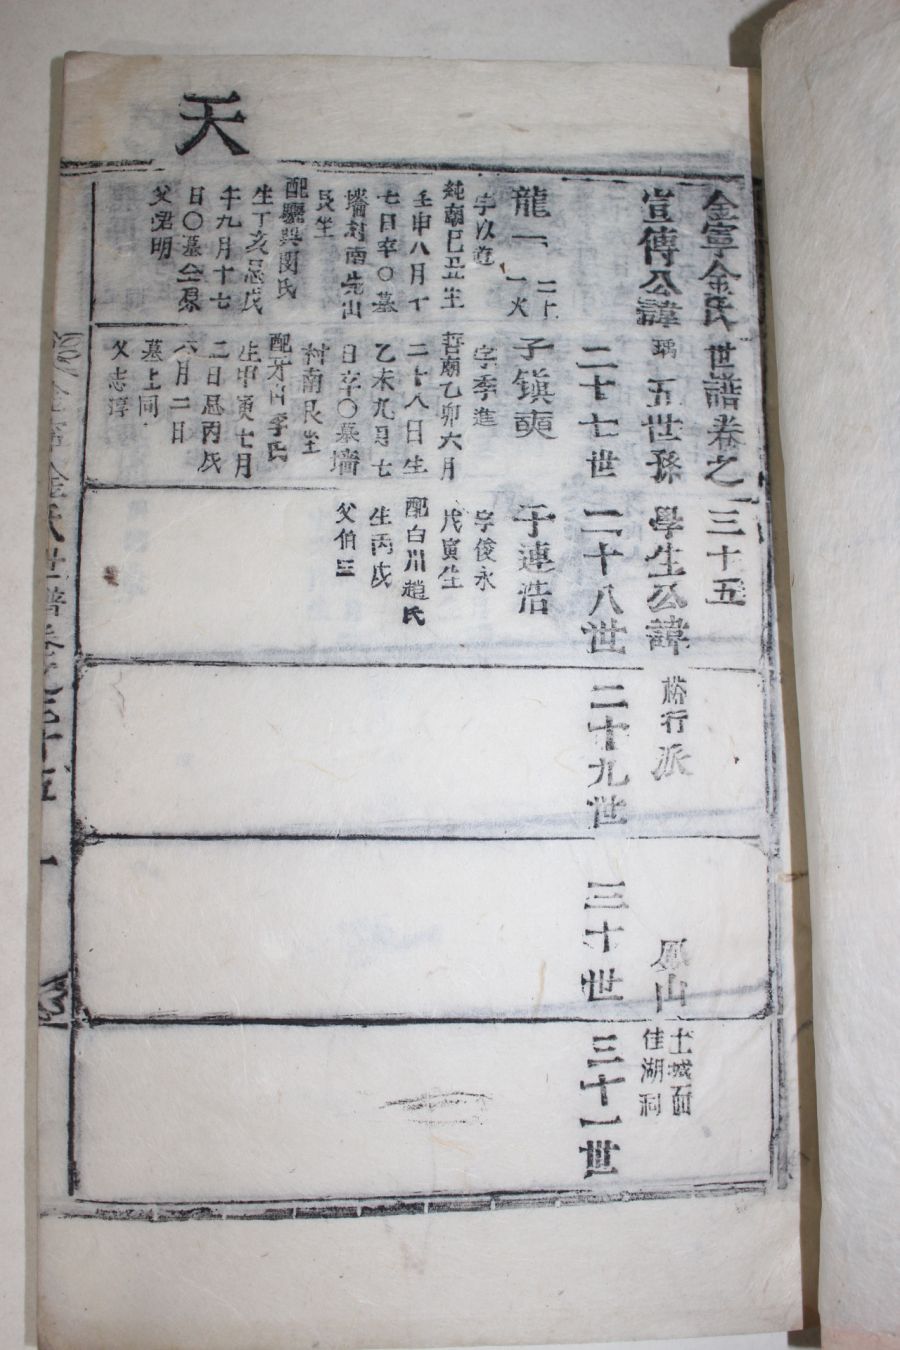 天
金寧金氏世譜卷之三十五
宣傳公諱 瑀 五世孫 學生公諱 格行 派 鳳山 土城面 佳湖洞
二十七世 二十八世 二十九世 三十世 三十一世
龍一
字以道
純廟己丑生
壬申八月十
七日卒〇墓
墻村南先山
艮坐
配驪興閔氏
生丁亥忌戊
午九月十七
日〇墓仝原
父弼明
子鎮奭
字季進
哲廟乙卯六月
二十八日生
乙未九月七
日卒〇墓墻
村南艮坐
配牙山李氏
生甲寅七月
二日忌丙戌
六月二日
墓上同
父志淳
子連浩
字俊永
戊寅生
配白川趙氏
生丙戌
父伯三
金寧金氏世譜卷之三十五 一